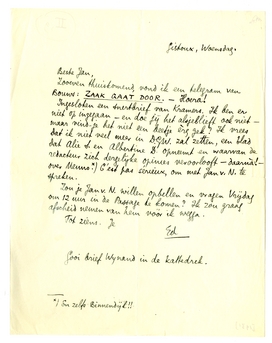 Gistoux, Woensdag.
Beste Jan,
Zooeven thuiskomend vond ik een telegram van
Bouws: ZAAK GAAT DOOR. — Hoera!
Ingesloten een snertbrief van Kramers. Ik ben er
niet op ingegaan - en doe jij het alsjeblieft ook niet -
maar vind je het niet een beetje erg gek? Ik vrees
dat ik niet veel meer in zal zetten, een blad
dat Alie v. en Albertine D. opneemt en waarvan de
redacteur zich dergelijke opinies veroorlooft - daarnà! -
over Menno*) C'est pas sérieux, om met Jan v. N. te
spreken.
Zou je Jan v. N. willen opbellen en vragen Vrijdag
om 12 uur in de Passage te komen? Ik zou graag
afscheid nemen van hem vóór ik wegga.
Tot ziens. Je
Ed
Gooi brief Wijnand in de kattedrek.
*) En zelfs Binnendijk!!